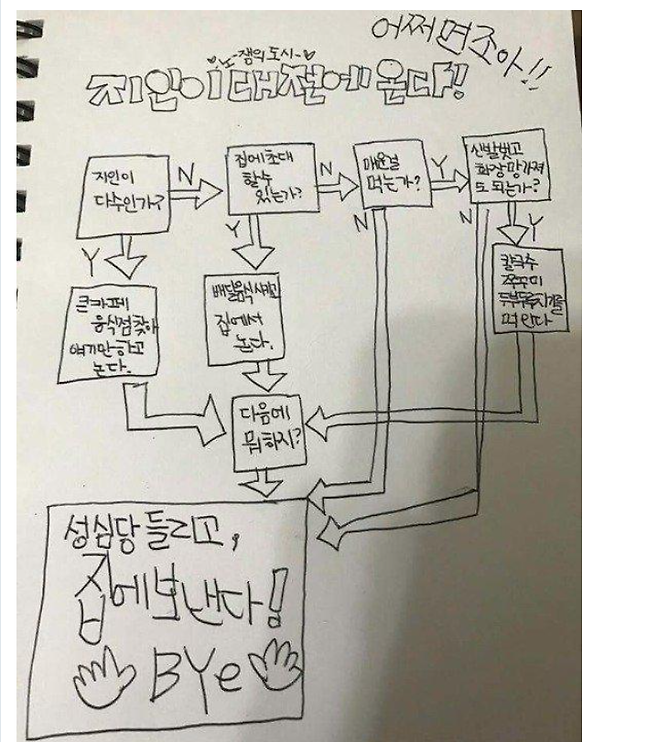 어쩌면조아!!
노-잼의 도시-
지인이 대전에 온다!
지인이
다수인가?
N
집에 초대
할 수
있는가?
N
매운걸
먹는가?
Y
신발벗고
화장망가져
도 되는가?
Y
Y
N
N
Y
큰 카페
음식점찾아
얘기만하고
논다.
배달음식시키고
집에서
논다.
칼국수
쭈꾸미
두부두루치기를
먹인다
다음에
뭐하지?
성심당 들리고,
집에보낸다!
BYe